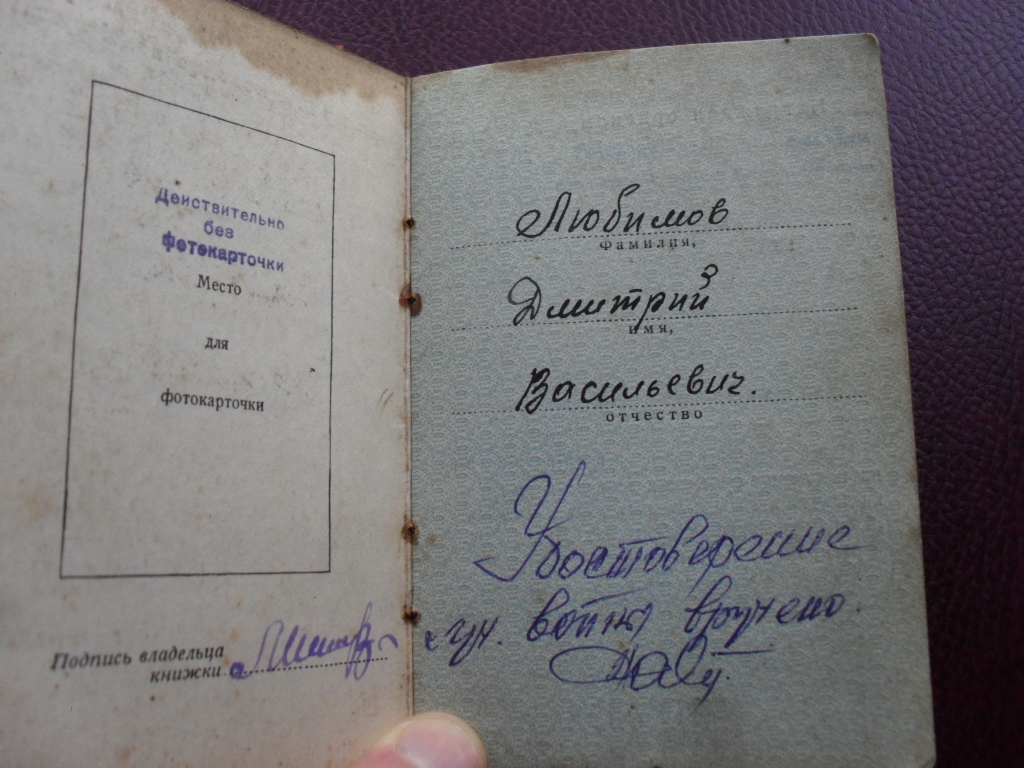 Действительно
без
фотокарточки
Место
для
фотокарточки
Подпись владельца
книжки
Любимов
фамилия,
Дмитрий
имя,
Васильевич.
отчество
Удостоверение
уч. войны вручено.